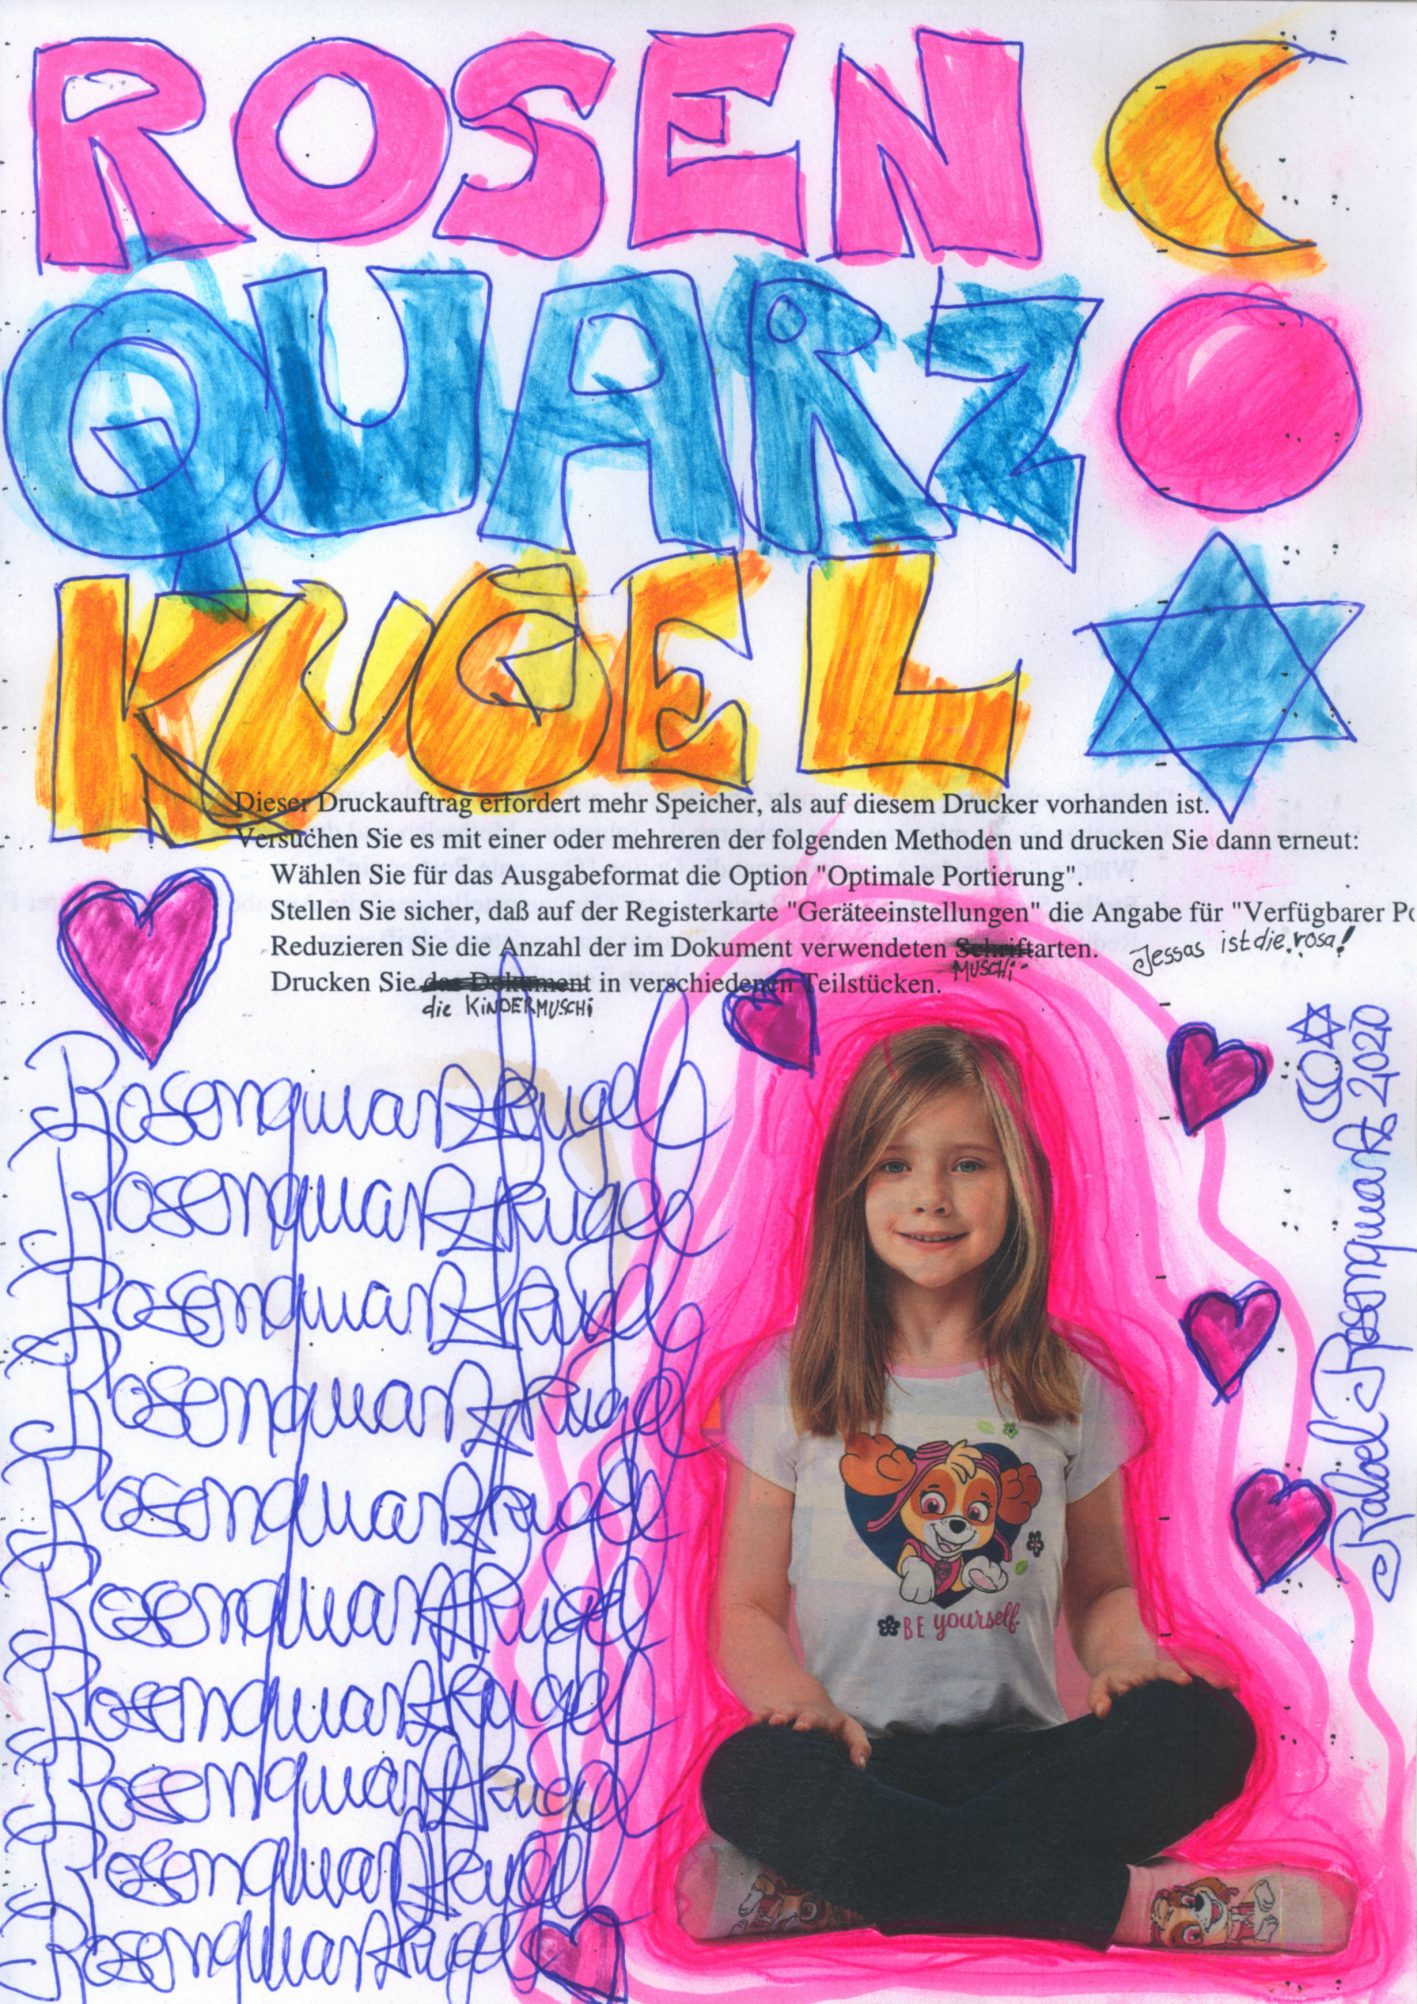 ROSEN
QUARZ
KUGEL
Dieser Druckauftrag erfordert mehr Speicher, als auf diesem Drucker vorhanden ist.
Versuchen Sie es mit einer oder mehreren der folgenden Methoden und drucken Sie dann erneut:
Wählen Sie für das Ausgabeformat die Option "Optimale Portierung".
Stellen Sie sicher, daß auf der Registerkarte "Geräteeinstellungen" die Angabe für "Verfügbarer
Reduzieren Sie die Anzahl der im Dokument verwendeten Schriftarten.
Drucken Sie das Dokument in verschiedenen Teilstücken.
Rosenquarzkugel
Rosenquarzkugel
Rosenquarzkugel
Rosenquarzkugel
Rosenquarzkugel
Rosenquarzkugel
Rosenquarzkugel
Rosenquarzkugel
Rosenquarzkugel
Rosenquarzkugel
BE yourself
Rosenquarz 2020